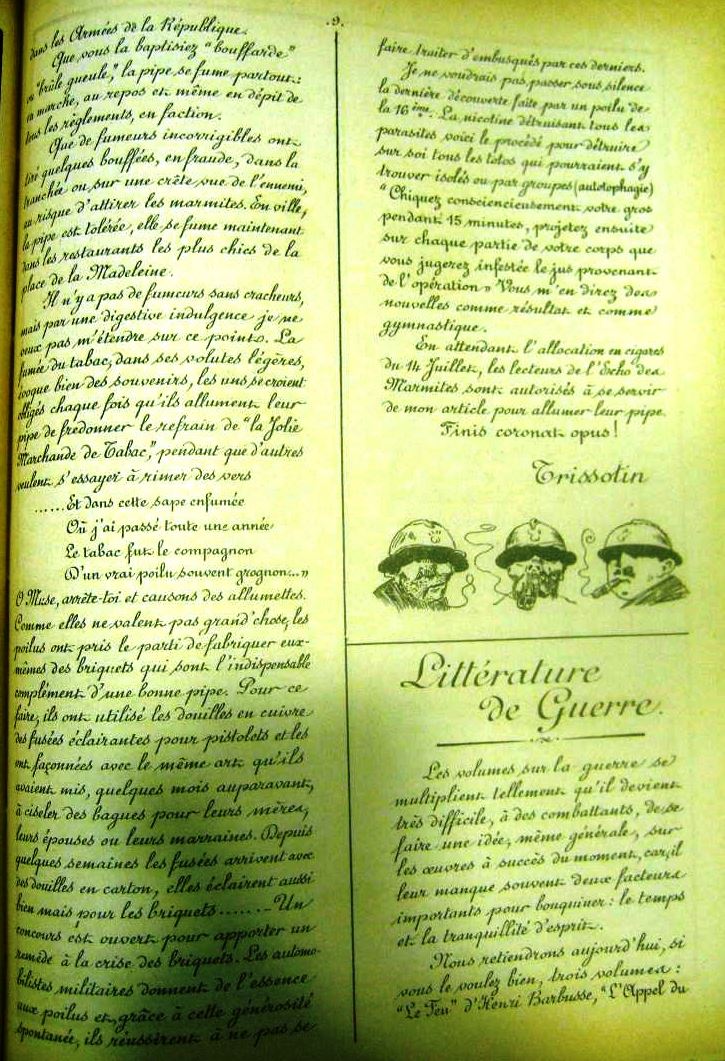 .9.
dans les Armées de la République.
Que vous la baptisiez "bouffarde"
ou "brûle gueule", la pipe se fume partout :
en marche, au repos et même en dépit de
tous les règlements, en faction.
Que de fumeurs incorrigibles ont
tiré quelques bouffées, en fraude, dans la
tranchée ou sur une crête vue de l'ennemi,
au risque d'attirer les marmites. En ville,
la pipe est tolérée, elle se fume maintenant
dans les restaurants les plus chics de la
place de la Madeleine.
Il n'y a pas de fumeurs sans cracheurs,
mais par une digestive indulgence je ne
veux pas m'étendre sur ce point. La
fumée du tabac, dans ses volutes légères,
évoque bien des souvenirs, les uns se croient
obligés chaque fois qu'ils allument leur
pipe de fredonner le refrain de "la Jolie
Marchande de Tabac", pendant que d'autres
veulent s'essayer à rimer des vers
......Et dans cette sape enfumée
Où j'ai passé toute une année
Le tabac fut le compagnon
D'un vrai poilu souvent grognon...»
O Muse, arrête-toi et causons des allumettes.
Comme elles ne valent pas grand'chose, les
poilus ont pris le parti de fabriquer eux-
mêmes des briquets qui sont l'indispensable
complément d'une bonne pipe. Pour ce
faire, ils ont utilisé les douilles en cuivre
des fusées éclairantes pour pistolets et les
ont façonnées avec le même art qu'ils
avaient mis, quelques mois auparavant,
à ciseler des bagues pour leurs mères,
leurs épouses ou leurs marraines. Depuis
quelques semaines les fusées arrivent avec
des douilles en carton, elles éclairent aussi
bien mais pour les briquets....... Un
concours est ouvert pour apporter un
remède à la crise des briquets. Les automo-
bilistes militaires donnent de l'essence
aux poilus et, grâce à cette générosité
spontanée, ils réussirent à ne pas se
faire traiter d'embusqués par ces derniers.
Je ne voudrais pas passer sous silence
la dernière découverte faite par un poilu de
la 16ème. La nicotine détruisant tous les
parasites voici le procédé pour détruire
sur soi tous les totos qui pourraient s'y
trouver isolés ou par groupes (autotophagie)
"Chiquez consciencieusement votre gros
pendant 15 minutes, projetez ensuite
sur chaque partie de votre corps que
vous jugerez infestée le jus provenant
de l'opération» Vous m'en direz des
nouvelles comme résultat et comme
gymnastique.
En attendant l'allocation en cigares
du 14 Juillet, les lecteurs de l'Echo des
Marmites sont autorisés à se servir
de mon article pour allumer leur pipe.
Finis coronat opus !
Trissotin
Littérature
de Guerre.
Les volumes sur la guerre se
multiplient tellement qu'il devient
très difficile, à des combattants, de se
faire une idée, même générale, sur
les œuvres à succès du moment, car, il
leur manque souvent deux facteurs
importants pour bouquiner : le temps
et la tranquillité d'esprit.
Nous retiendrons aujourd'hui, si
vous le voulez bien, trois volumes :
"Le Feu" d'Henri Barbusse, "L'Appel du